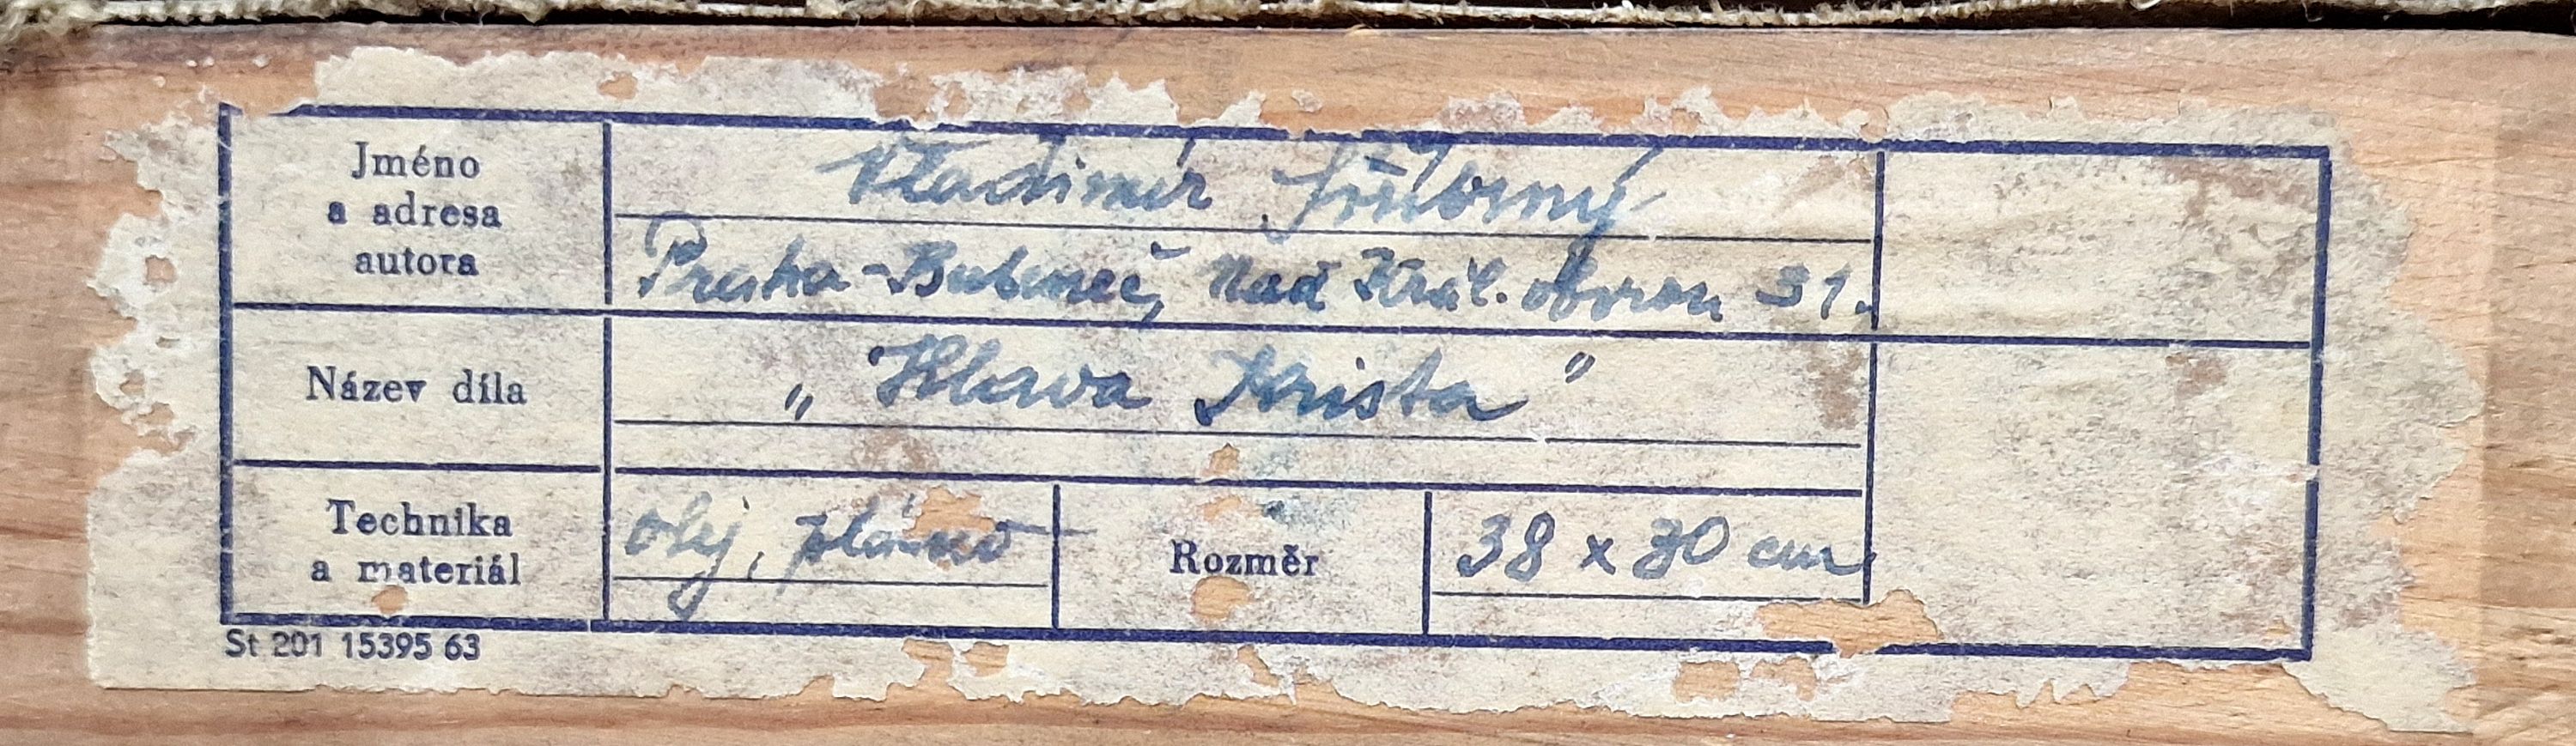 Jméno
a adresa
autora
Vladimír Stříbrný
Praha-Bubeneč, Nad Král. oborou 31.
Název díla
„Hlava Krista"
Technika
a materiál
olej, plátno
Rozměr
38 x 30 cm
St 201 15395 63